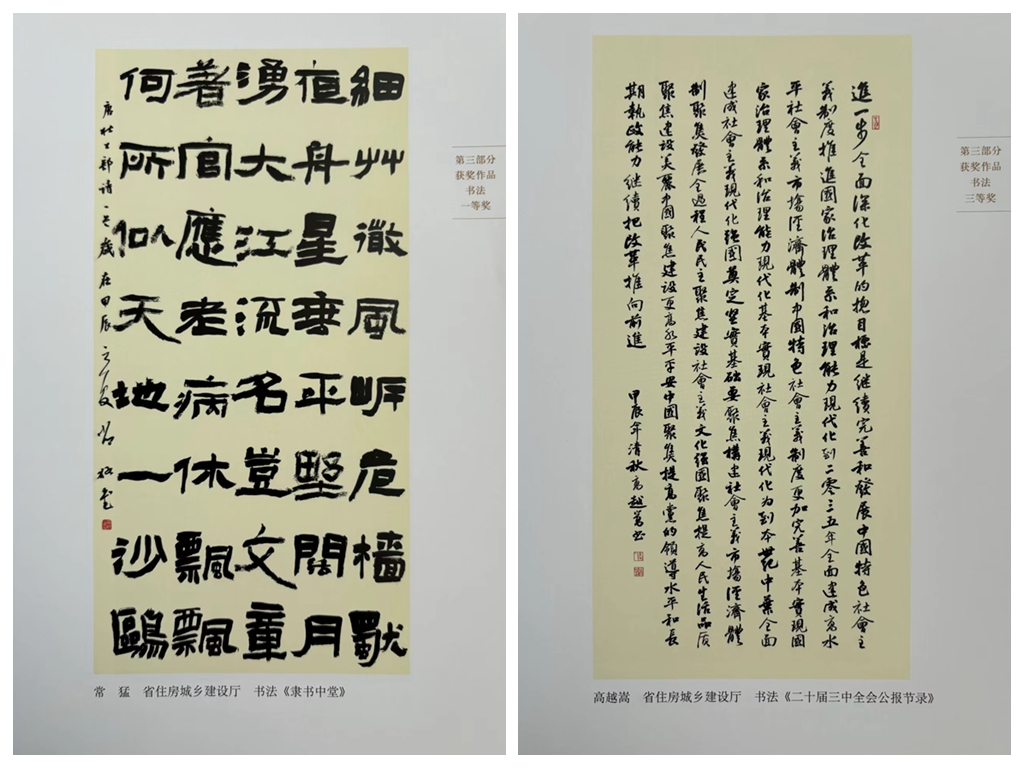 細艸微風岸危檣獨
夜舟星垂平野闊月
湧大江流名豈文章
著官應老病休飄飄
何所似天地一沙鷗
唐杜工部詩一首歲在甲辰之夏常猛書
第三部分
获奖作品
书法
一等奖
常 猛 省住房城乡建设厅 书法《隶书中堂》
進一步全面深化改革的總目標是繼續完善和發展中國特色社會主
義制度推進國家治理體系和治理能力現代化到二零三五年全面建成高水
平社會主義市場經濟體制中國特色社會主義制度更加完善基本實現國
家治理體系和治理能力現代化基本實現社會主義現代化为到本世紀中葉全面
建成社會主義現代化強國奠定堅實基礎要聚焦構建社會主義市場經濟體
制聚焦發展全過程人民民主聚焦建設社會主義文化強國聚焦提高人民生活品质
聚焦建設美麗中國聚焦建設更高水平平安中國聚焦提高黨的領導水平和長
期執政能力繼續把改革推向前進
甲辰年清秋高越嵩书
第三部分
获奖作品
书法
三等奖
高越嵩 省住房城乡建设厅 书法《二十届三中全会公报节录》